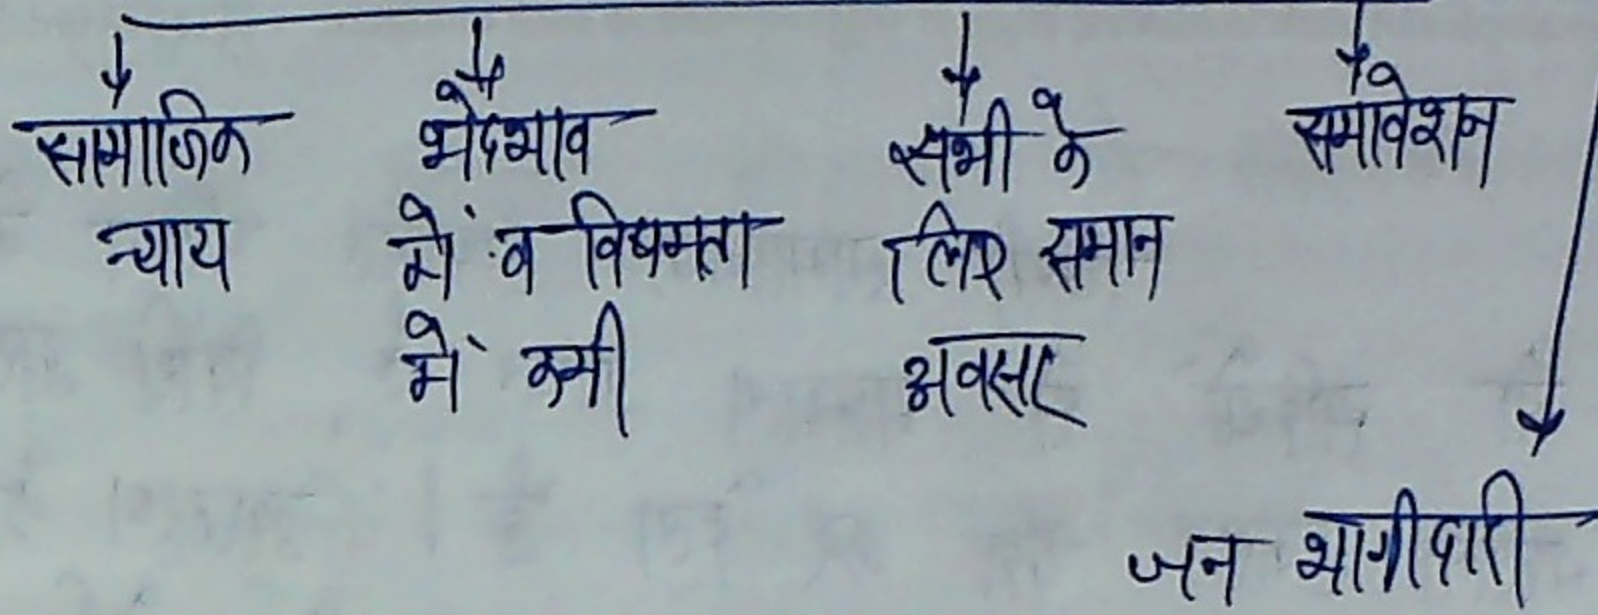 सामाजिक
न्याय
भेदभाव
में व विषमता
में कमी
सभी के
लिए समान
अवसर
समावेशन
जन भागीदारी